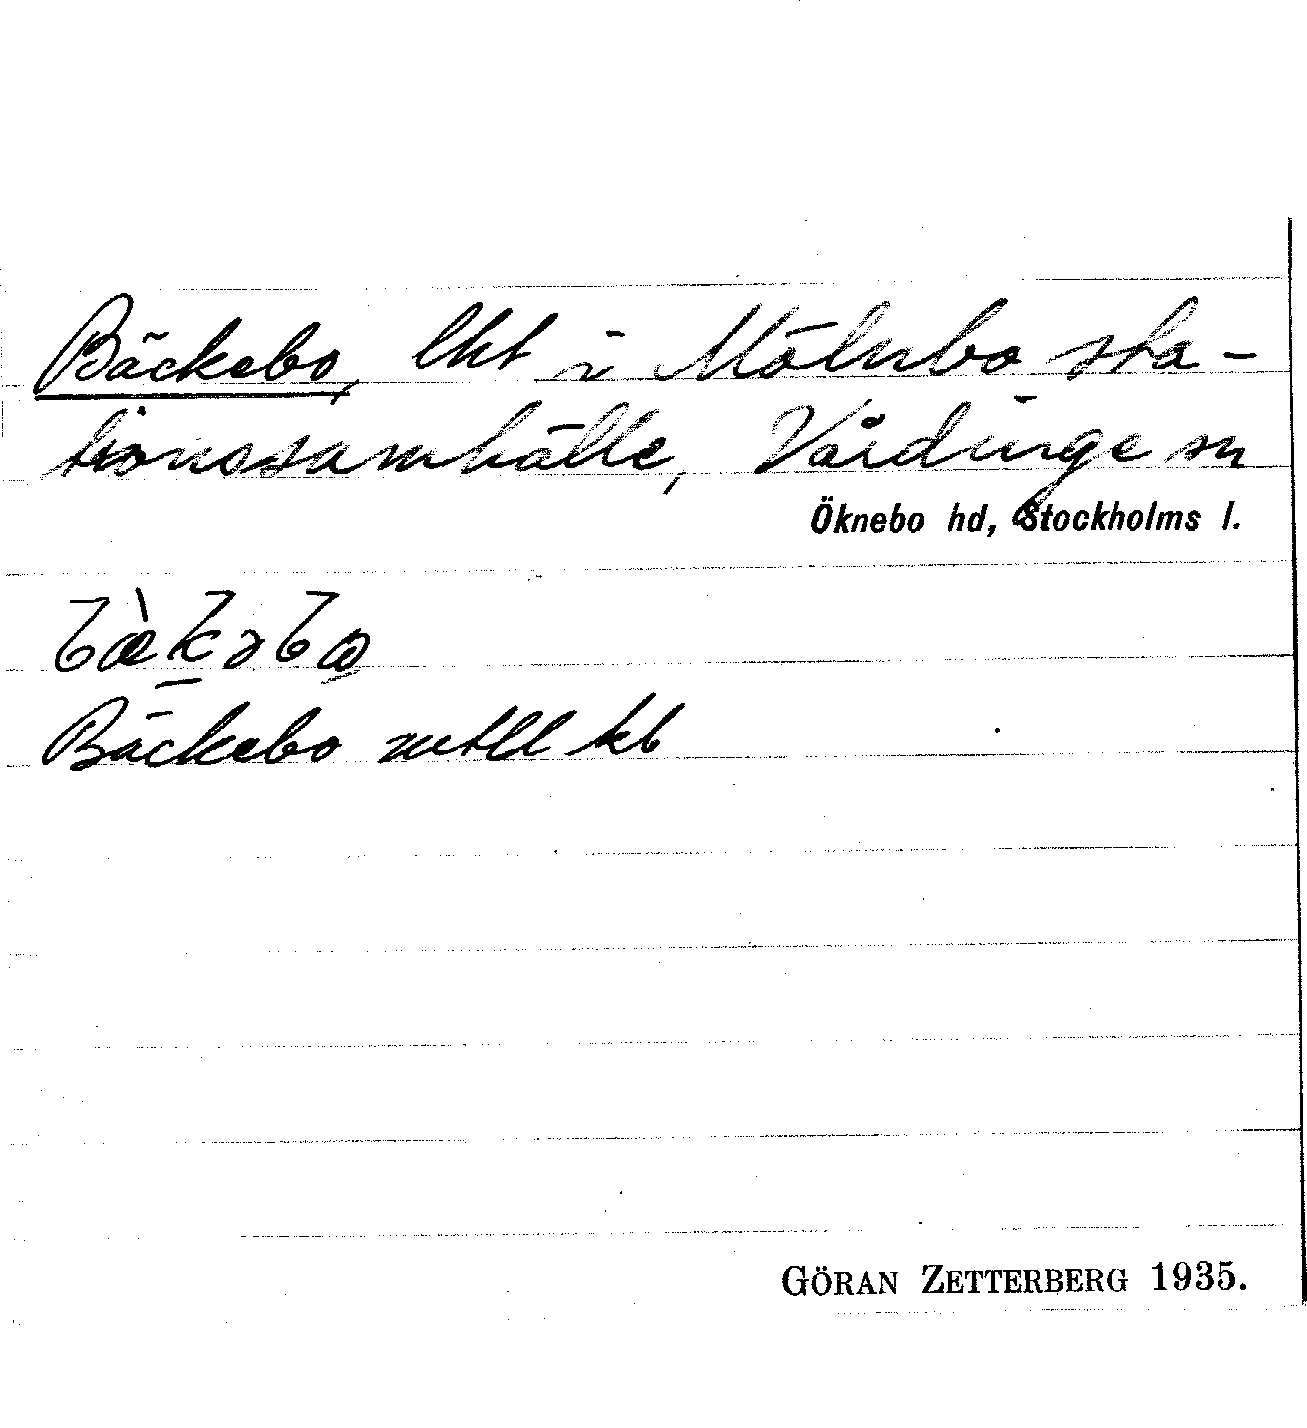 Bäckebo, lht i Mölnbo sta-
tionssamhälle, Vårdinge sn
Öknebo hd, Stockholms l.
bæ̀k̠əbω
Bäckebo mtll kb
GÖRAN ZETTERBERG 1935.